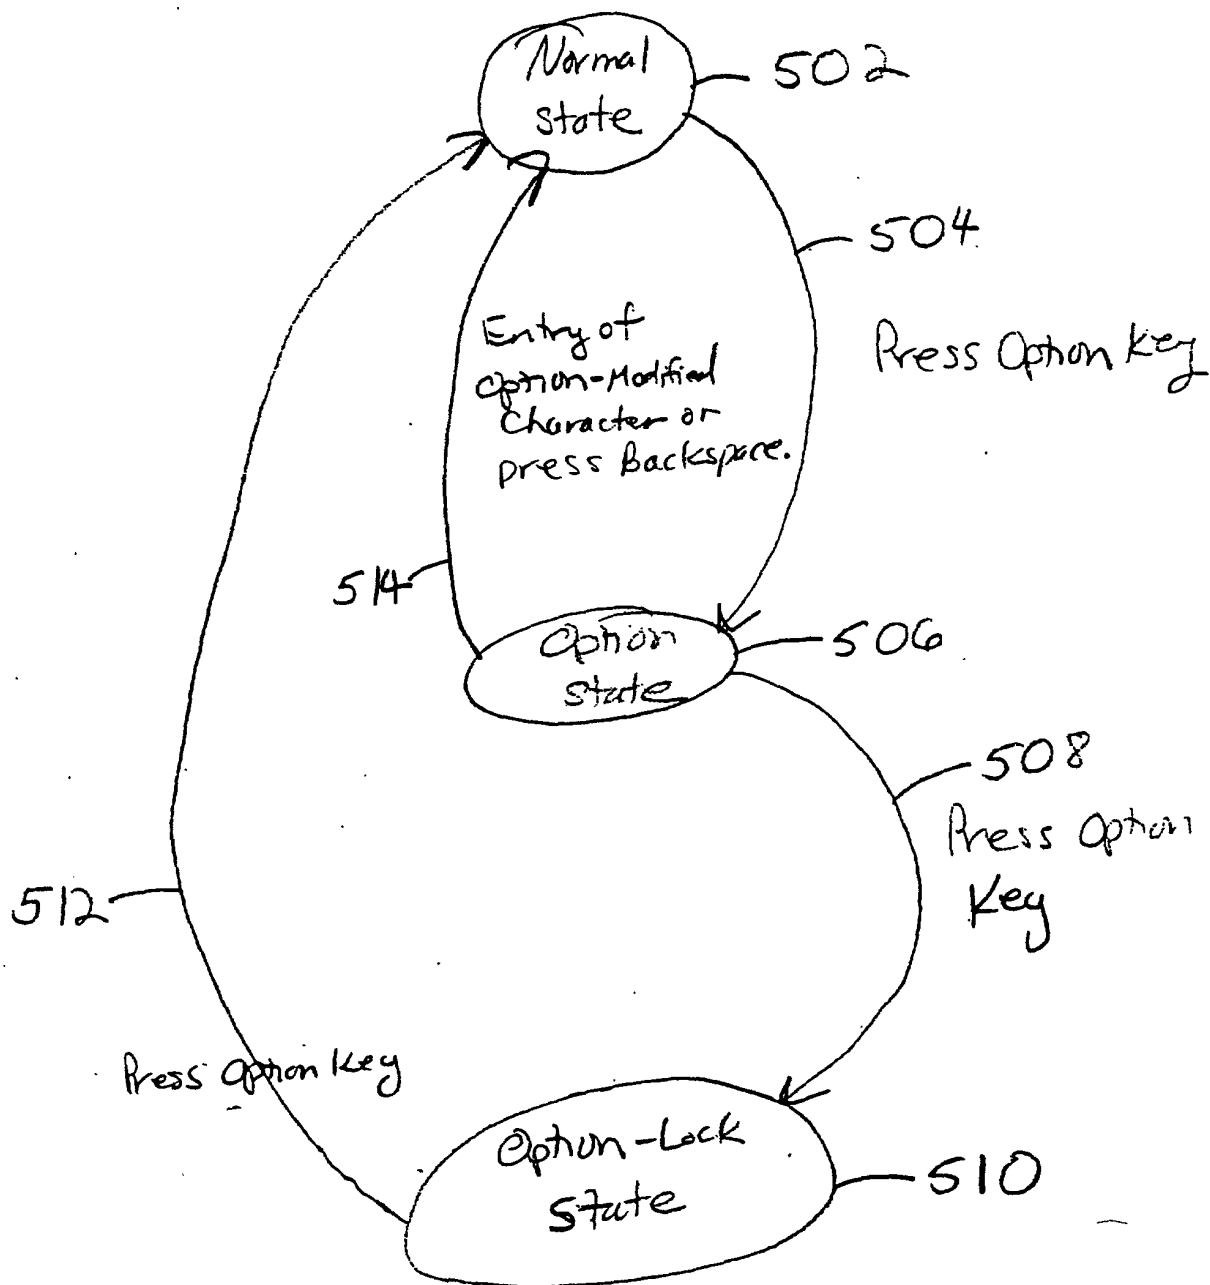 Normal
State
502
504
Press Option Key
Entry of
Option-Modified
Character or
press Backspace.
514
Option
State
506
508
Press Option
Key
512
Press Option Key
Option-Lock
State
510